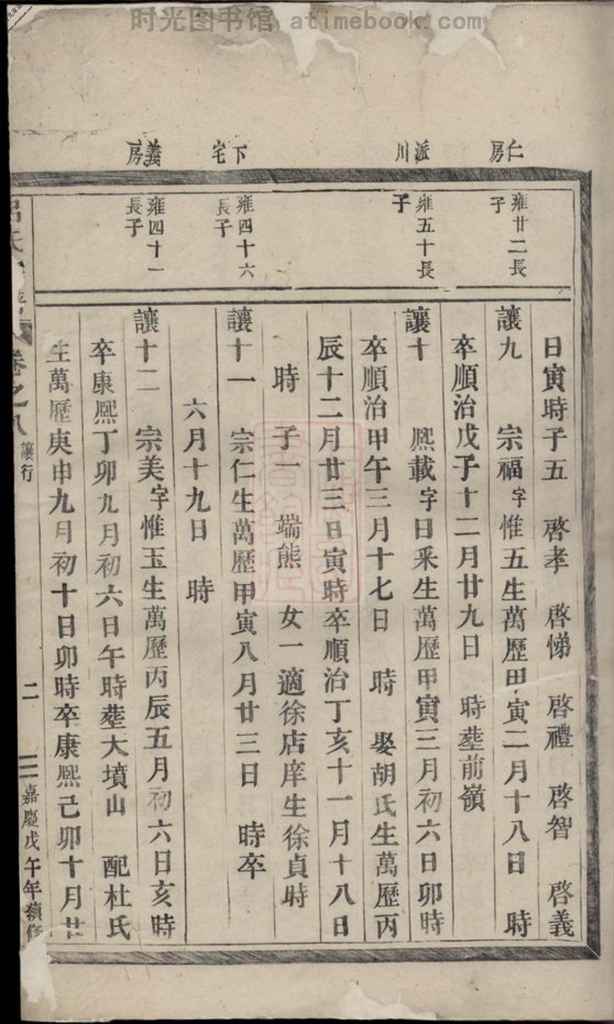 时光图书馆 atimebook.com
仁房
派川
下宅
義房
雍廿二長
子
雍五十長
子
雍四十六
長子
雍四十一
長子
日寅時子五 啓孝 啓悌 啓禮 啓智 啓義
讓九 宗福字惟五生萬歷甲寅二月十八日 時
卒順治戊子十二月廿九日 時塟前嶺
讓十 熈載字日采生萬歷甲寅三月初六日卯時
卒順治甲午三月十七日 時 娶胡氏生萬歷丙
辰十二月廿三日寅時卒順治丁亥十一月十八日
時 子一 端熊 女一適徐店庠生徐貞時
讓十一 宗仁生萬歷甲寅八月廿三日 時卒
六月十九日 時
讓十二 宗美字惟玉生萬歷丙辰五月初六日亥時
卒康熙丁卯九月初六日午時塟大墳山 配杜氏
生萬歷庚申九月初十日卯時卒康熙己卯十月廿
呂氏 卷之八 讓行 二 嘉慶戊午年續修